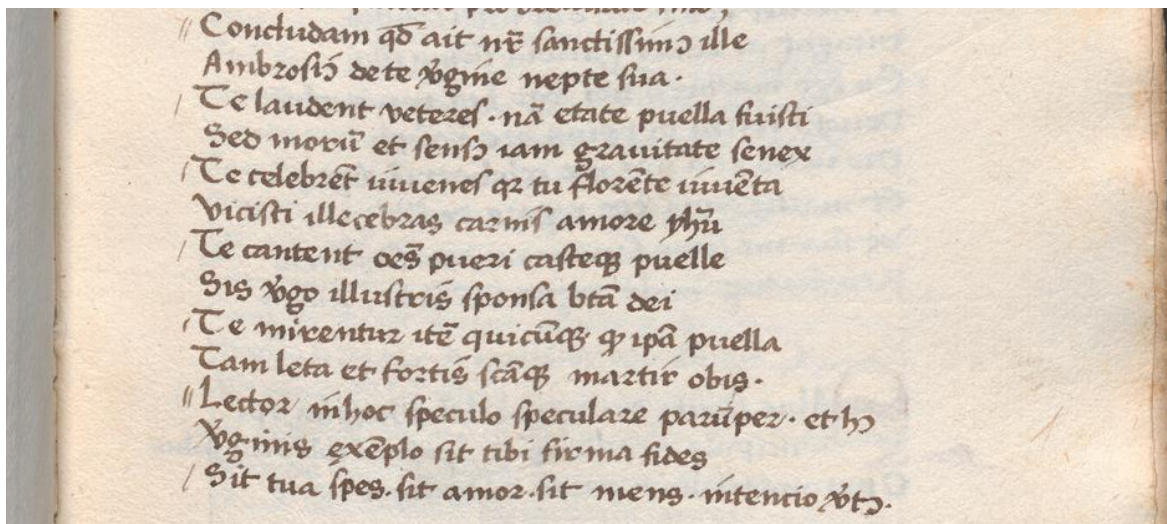 Concludam qđ ait nr̄ sanctissimꝯ ille
Ambrosiꝯ de te v̛gine nepte sua.
Te laudent veteres. nā etate puella fuisti
Sed morū et sensꝯ iam grauitate senex
Te celebrēt iuuenes qꝛ tu florēte iuuēta
Vicisti illecebras carnis amore yhū
Te cantent oēs pueri casteqꝫ puelle
Sis v̛go illustris sponsa btā dei
Te mirentur itē quicūqꝫ ꝙ ipā puella
Tam leta et fortis scāqꝫ martir obis.
Lector in hoc speculo speculare parūper. et hꝯ
v̛ginis exēplo sit tibi firma fides
Sit tua spes. sit amor. sit mens. intencio v̛tꝯ.